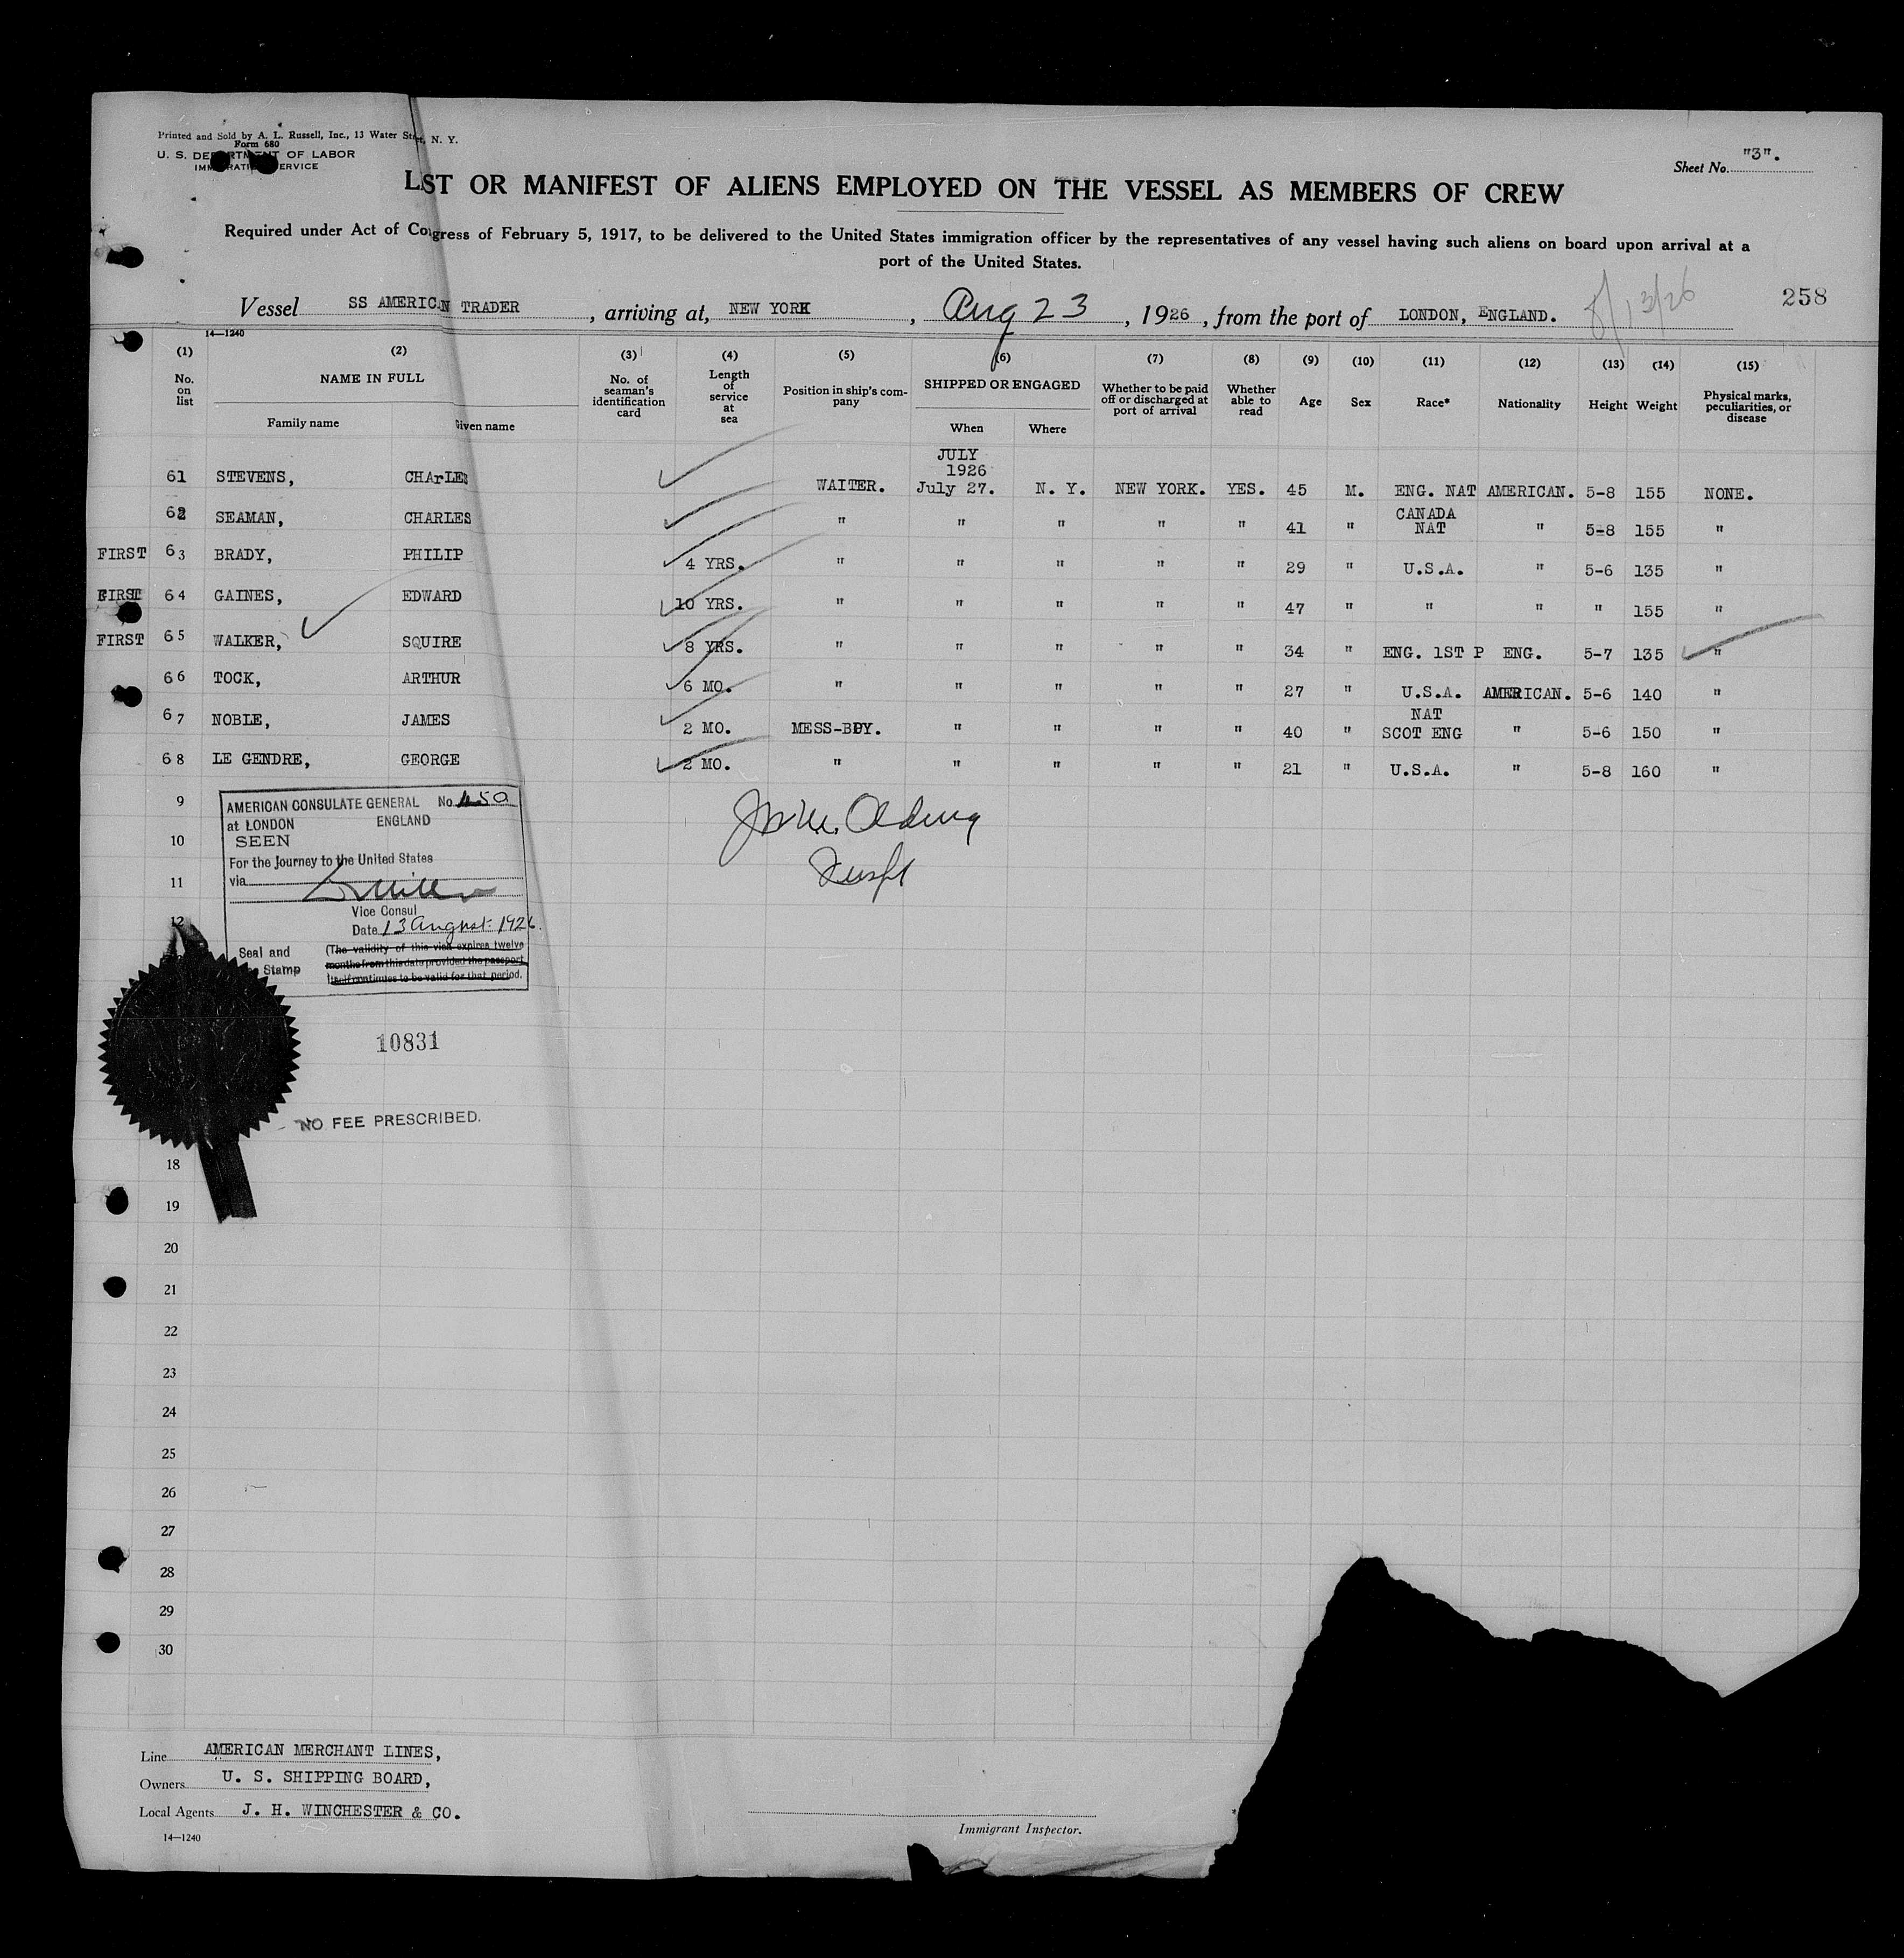 Printed and Sold by A. L. Russell, Inc., 13 Water Street, N. Y.
Form 680
U. S. DEPARTMENT OF LABOR
IMMIGRATION SERVICE
Sheet No. "3".
LIST OR MANIFEST OF ALIENS EMPLOYED ON THE VESSEL AS MEMBERS OF CREW
Required under Act of Congress of February 5, 1917, to be delivered to the United States immigration officer by the representatives of any vessel having such aliens on board upon arrival at a
port of the United States.
258
Vessel SS AMERICAN TRADER , arriving at, NEW YORK , Aug 23 , 1926 , from the port of LONDON, ENGLAND. 8/13/26
14—1240
(1) (2) (3) (4) (5) (6) (7) (8) (9) (10) (11) (12) (13) (14) (15)
No. on list NAME IN FULL Family name Given name No. of seaman's identification card Length of service at sea Position in ship's company SHIPPED OR ENGAGED When Where Whether to be paid off or discharged at port of arrival Whether able to read Age Sex Race* Nationality Height Weight Physical marks, peculiarities, or disease
JULY
1926
61 STEVENS, CHArLES WAITER. July 27. N. Y. NEW YORK. YES. 45 M. ENG. NAT AMERICAN. 5-8 155 NONE.
62 SEAMAN, CHARLES " " " " " 41 " CANADA NAT " 5-8 155 "
FIRST 63 BRADY, PHILIP 4 YRS. " " " " " 29 " U.S.A. " 5-6 135 "
FIRST 64 GAINES, EDWARD 10 YRS. " " " " " 47 " " " " 155 "
FIRST 65 WALKER, SQUIRE 8 YRS. " " " " " 34 " ENG. 1ST P ENG. 5-7 135 "
66 TOCK, ARTHUR 6 MO. " " " " " 27 " U.S.A. AMERICAN. 5-6 140 "
67 NOBLE, JAMES 2 MO. MESS-BOY. " " " " 40 " NAT SCOT ENG " 5-6 150 "
68 LE GENDRE, GEORGE 2 MO. " " " " " 21 " U.S.A. " 5-8 160 "
9
10
11
12
AMERICAN CONSULATE GENERAL No.
at LONDON ENGLAND
SEEN
For the Journey to the United States
via
Vice Consul
Date 13 August 1926.
Seal and
Stamp
(The validity of this visa expires twelve
months from this date provided the passport
itself continues to be valid for that period.
10831
NO FEE PRESCRIBED.
18
19
20
21
22
23
24
25
26
27
28
29
30
Line AMERICAN MERCHANT LINES,
Owners U. S. SHIPPING BOARD,
Local Agents J. H. WINCHESTER & CO.
14—1240
Immigrant Inspector.